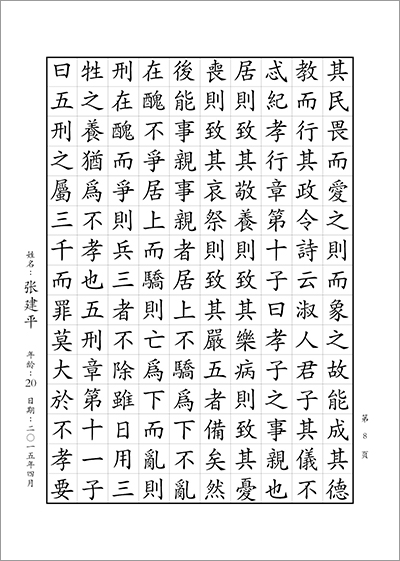 其民畏而愛之則而象之故能成其德
教而行其政令詩云淑人君子其儀不
忒紀孝行章第十子曰孝子之事親也
居則致其敬養則致其樂病則致其憂
喪則致其哀祭則致其嚴五者備矣然
後能事親事親者居上不驕爲下不亂
在醜不爭居上而驕則亡爲下而亂則
刑在醜而爭則兵三者不除雖日用三
牲之養猶爲不孝也五刑章第十一子
曰五刑之屬三千而罪莫大於不孝要
第 8 页
姓名：张建平 年龄：20 日期：二〇一五年四月